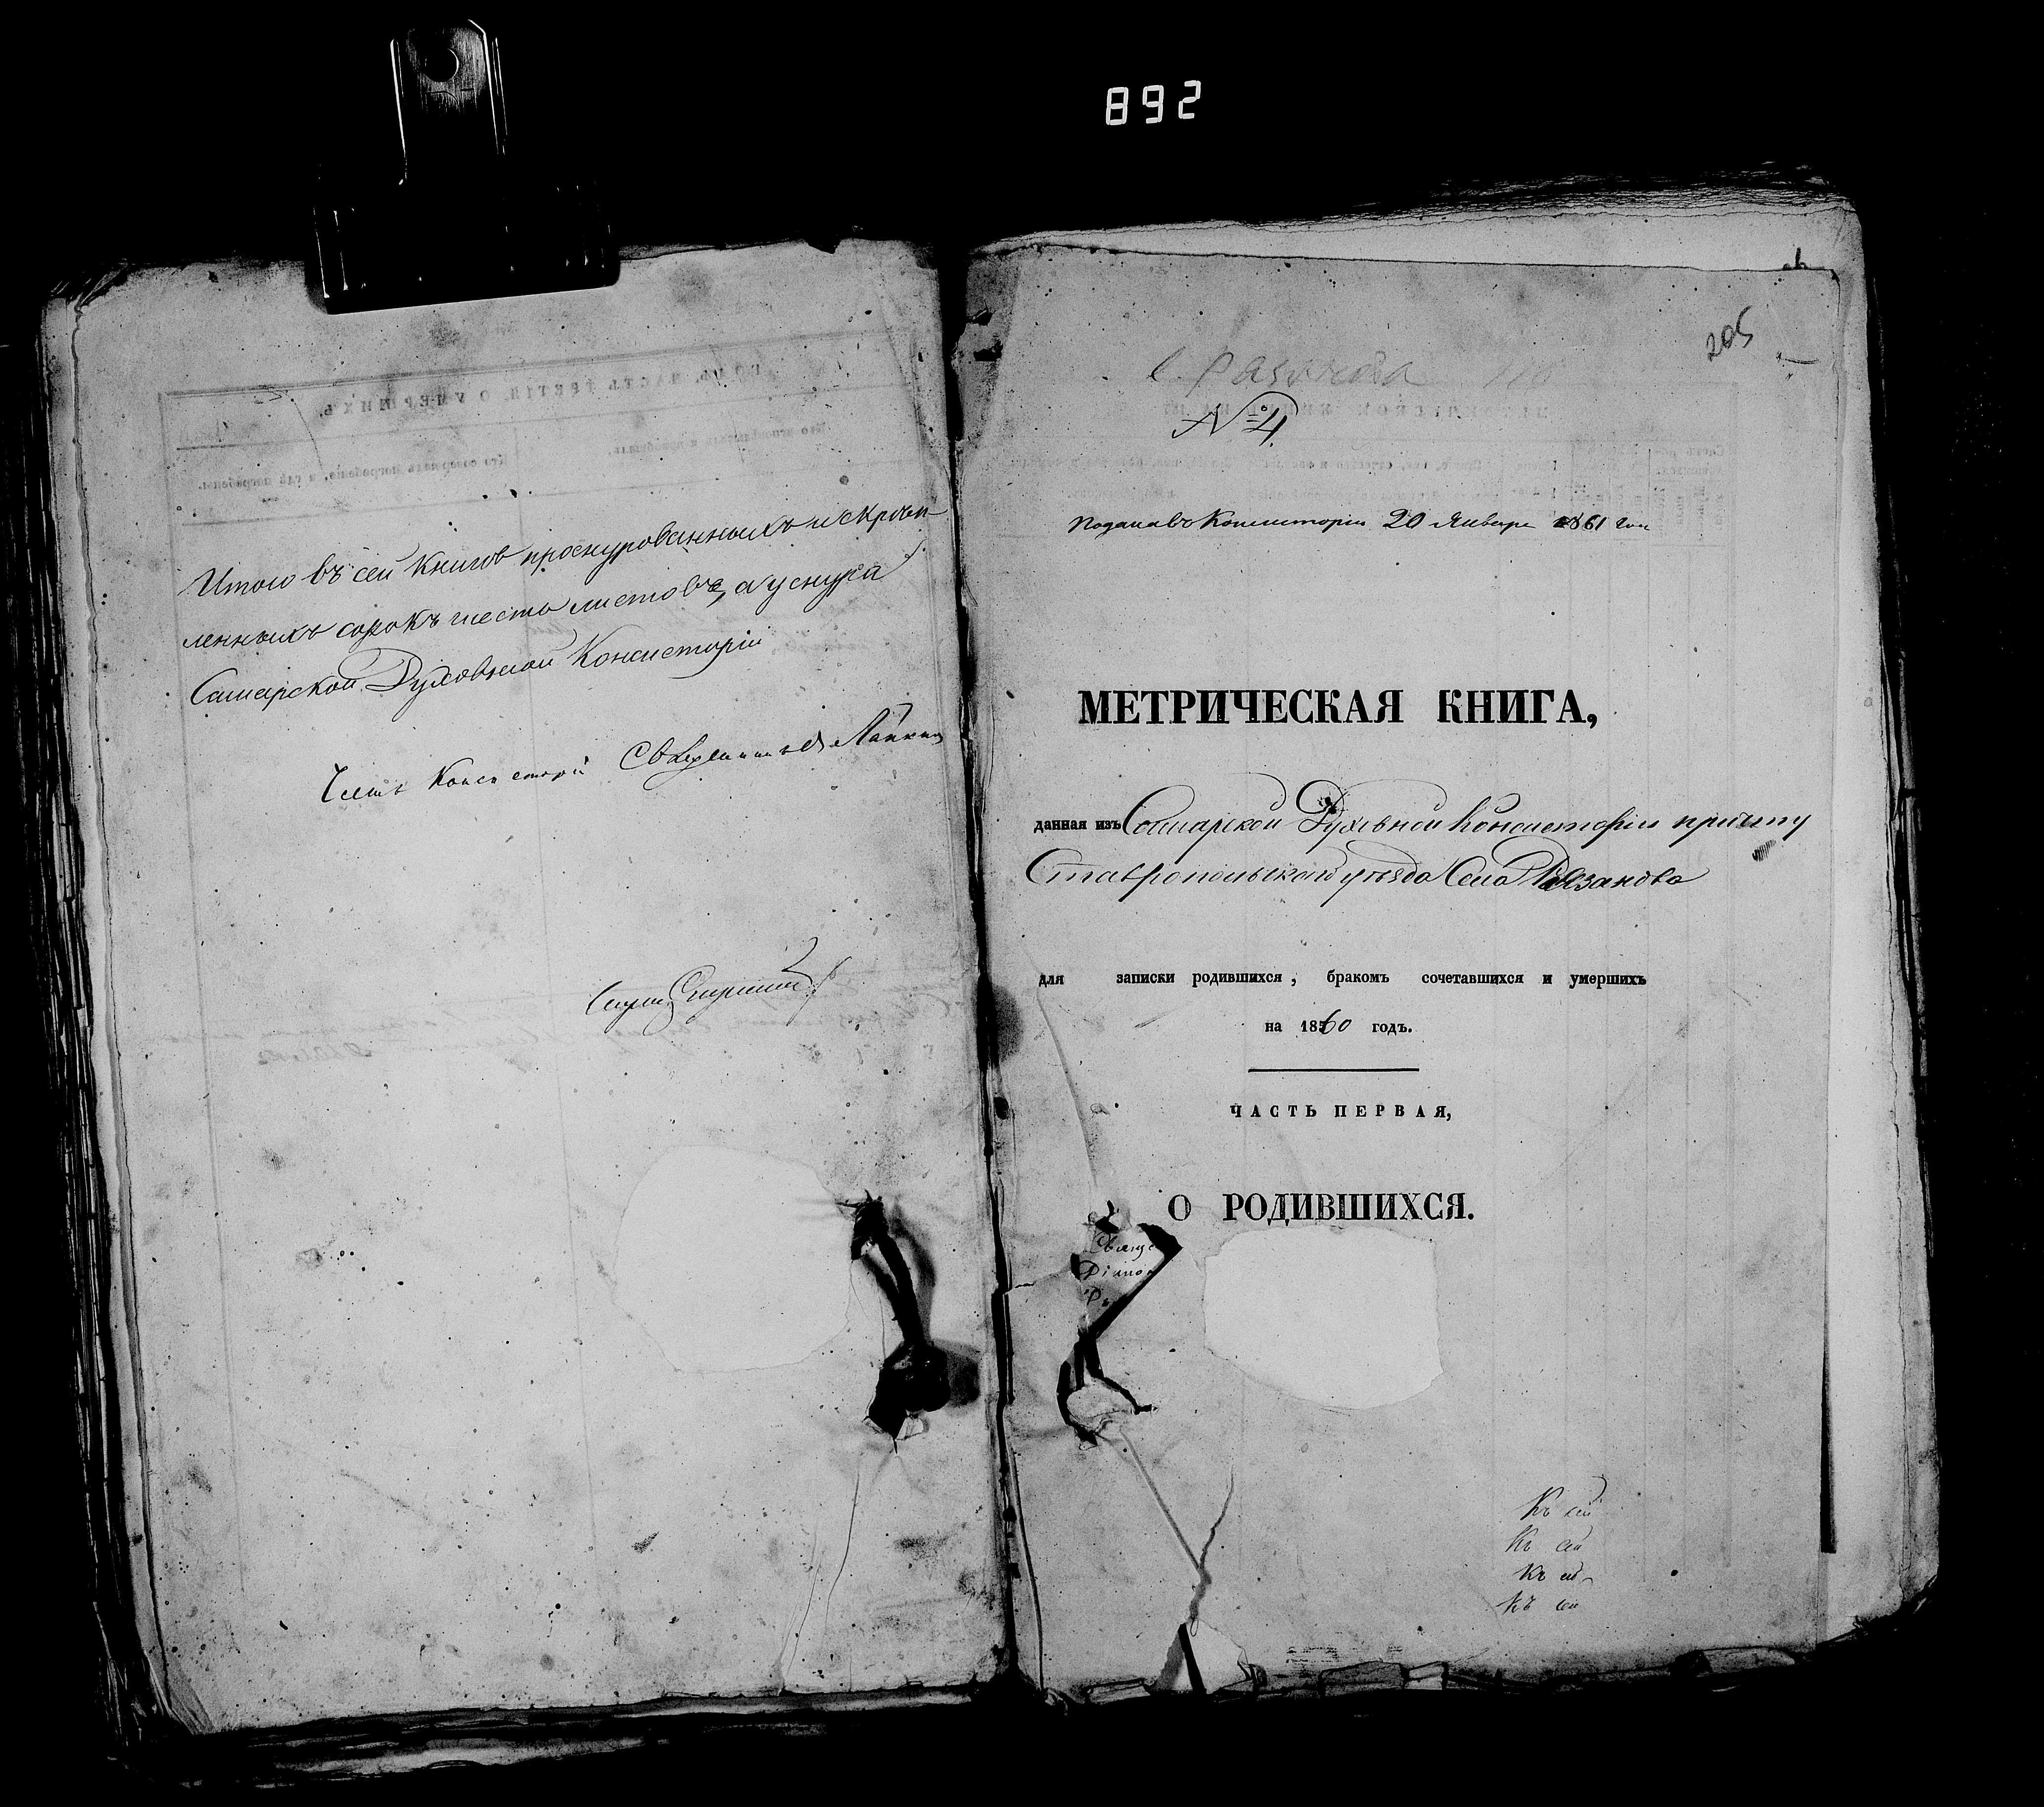 892
Итого въ сей книгѣ прошнурованныхъ и скрѣп-
ленныхъ сорокъ шесть листовъ, а у снура
Самарской Духовной Консисторіи
Членъ Консисторіи Священникъ
205
с. Рязанова
№ 4
Подана въ Консисторію 20 Января 1861 года
МЕТРИЧЕСКАЯ КНИГА,
данная изъ Самарской Духовной Консисторіи причту
Ставропольскаго уѣзда Села Рязанова
для записки родившихся, бракомъ сочетавшихся и умершихъ
на 1860 годъ.
ЧАСТЬ ПЕРВАЯ,
О РОДИВШИХСЯ.
Къ сей
Къ сей
Къ сей
Къ сей